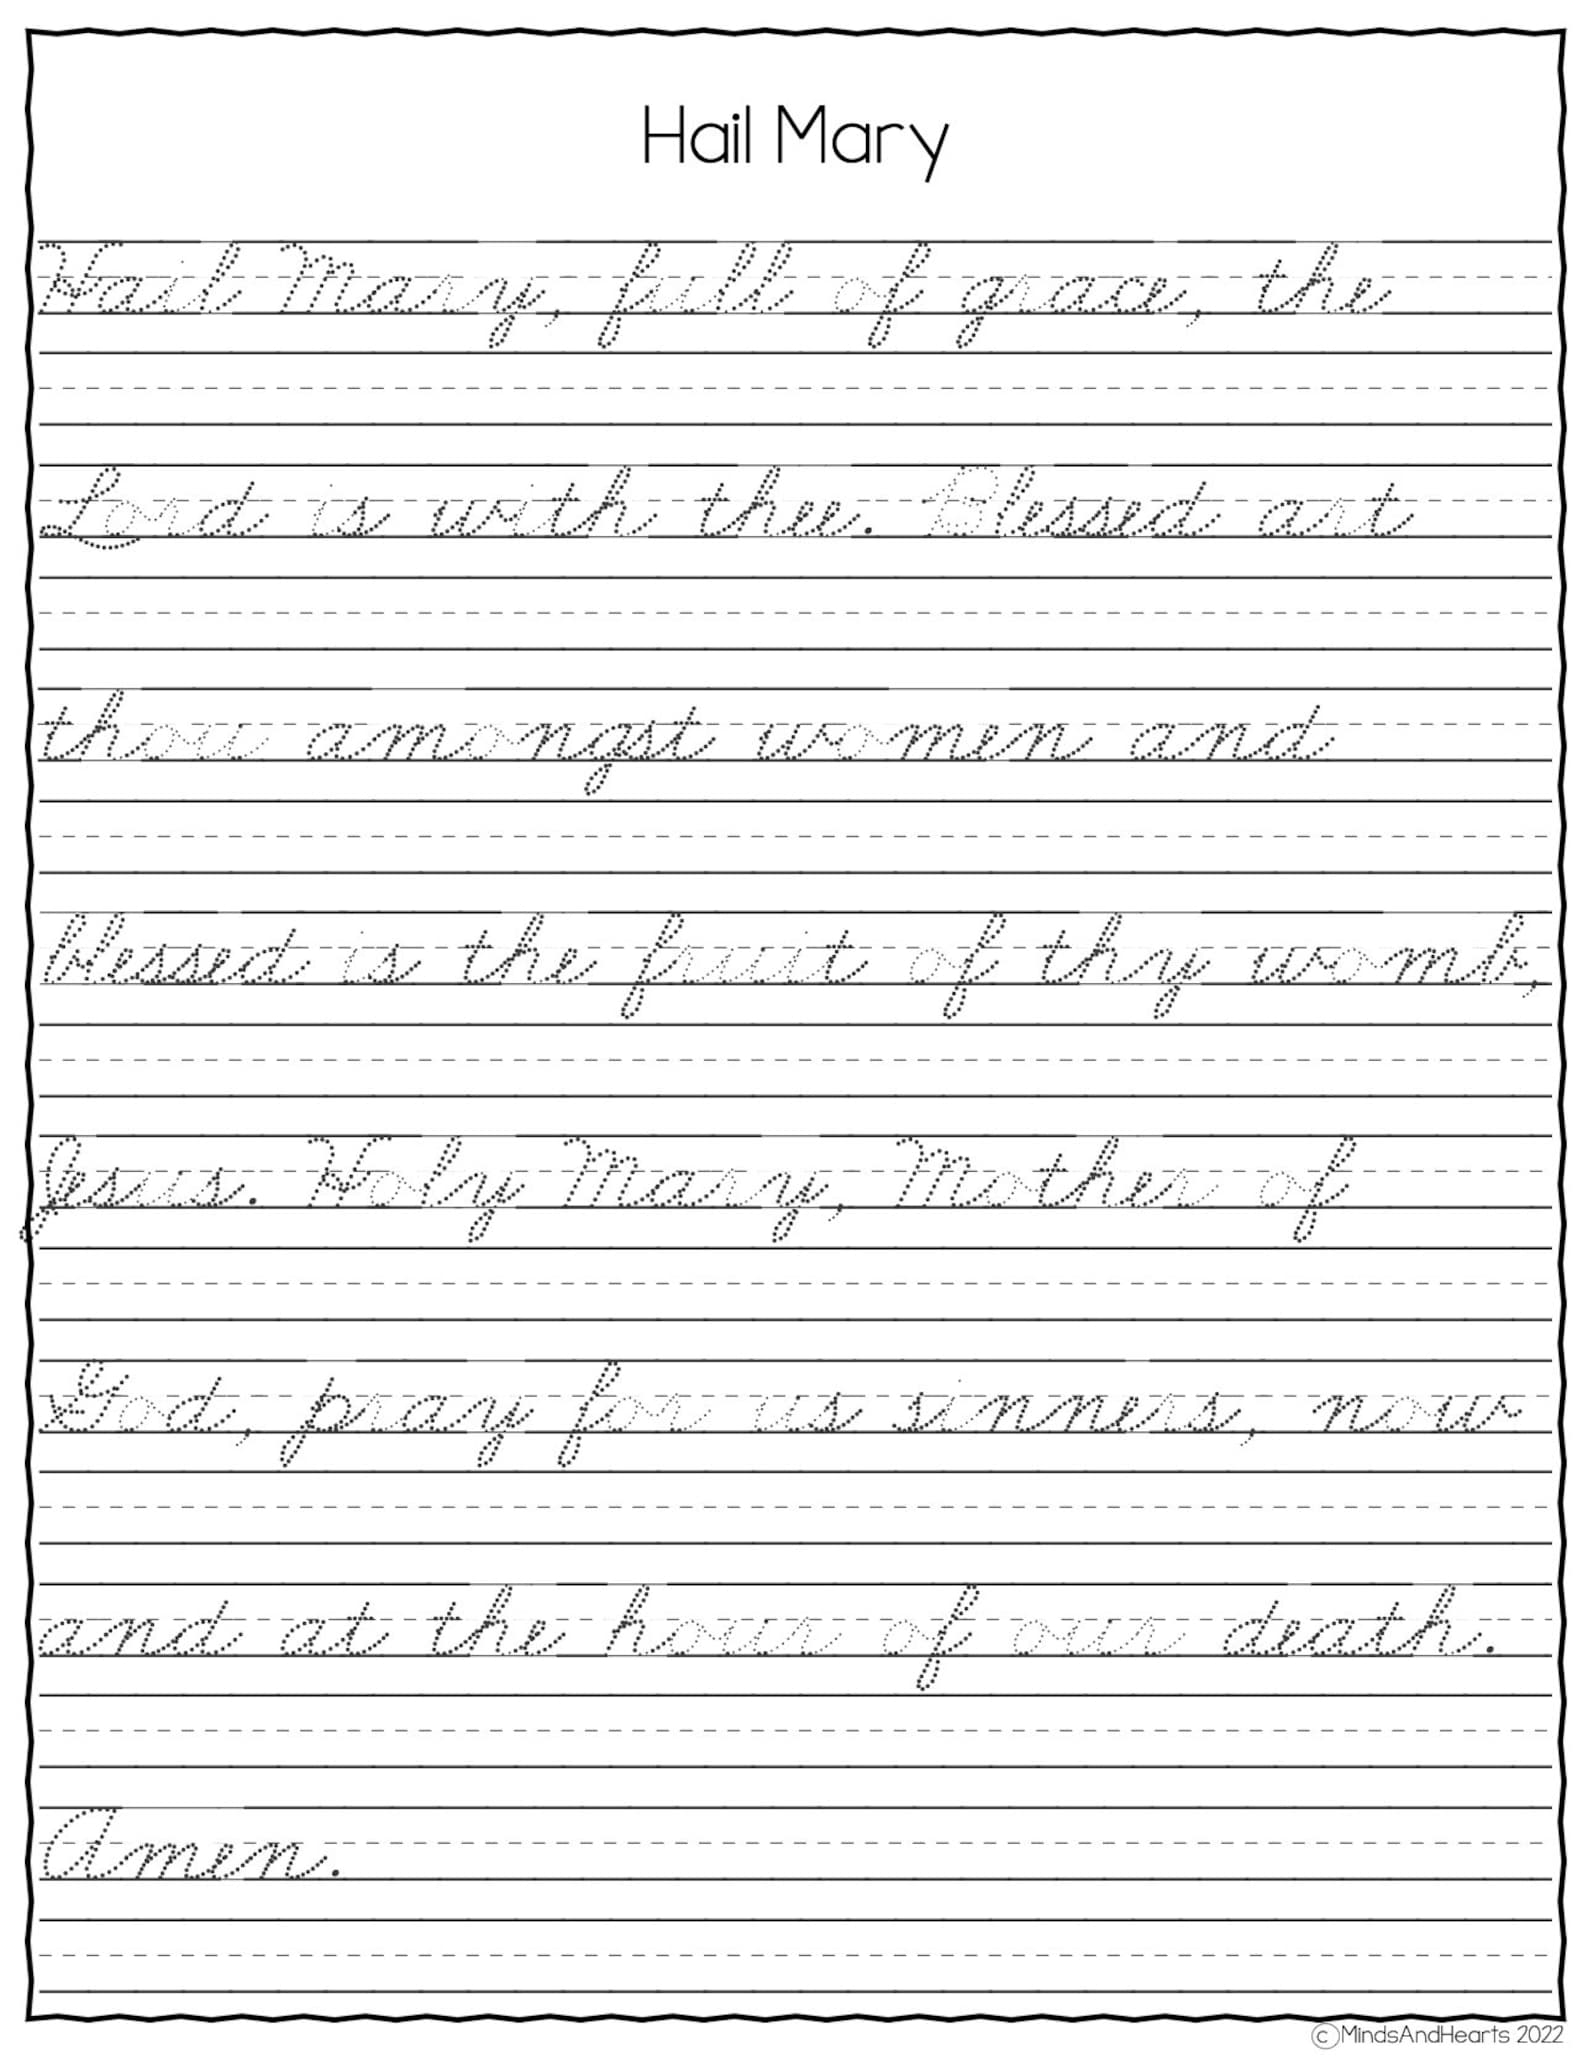 Hail Mary
Hail Mary, full of grace, the
Lord is with thee. Blessed art
thou amongst women and
blessed is the fruit of thy womb,
Jesus. Holy Mary, Mother of
God, pray for us sinners, now
and at the hour of our death.
Amen.
©MindsAndHearts 2022